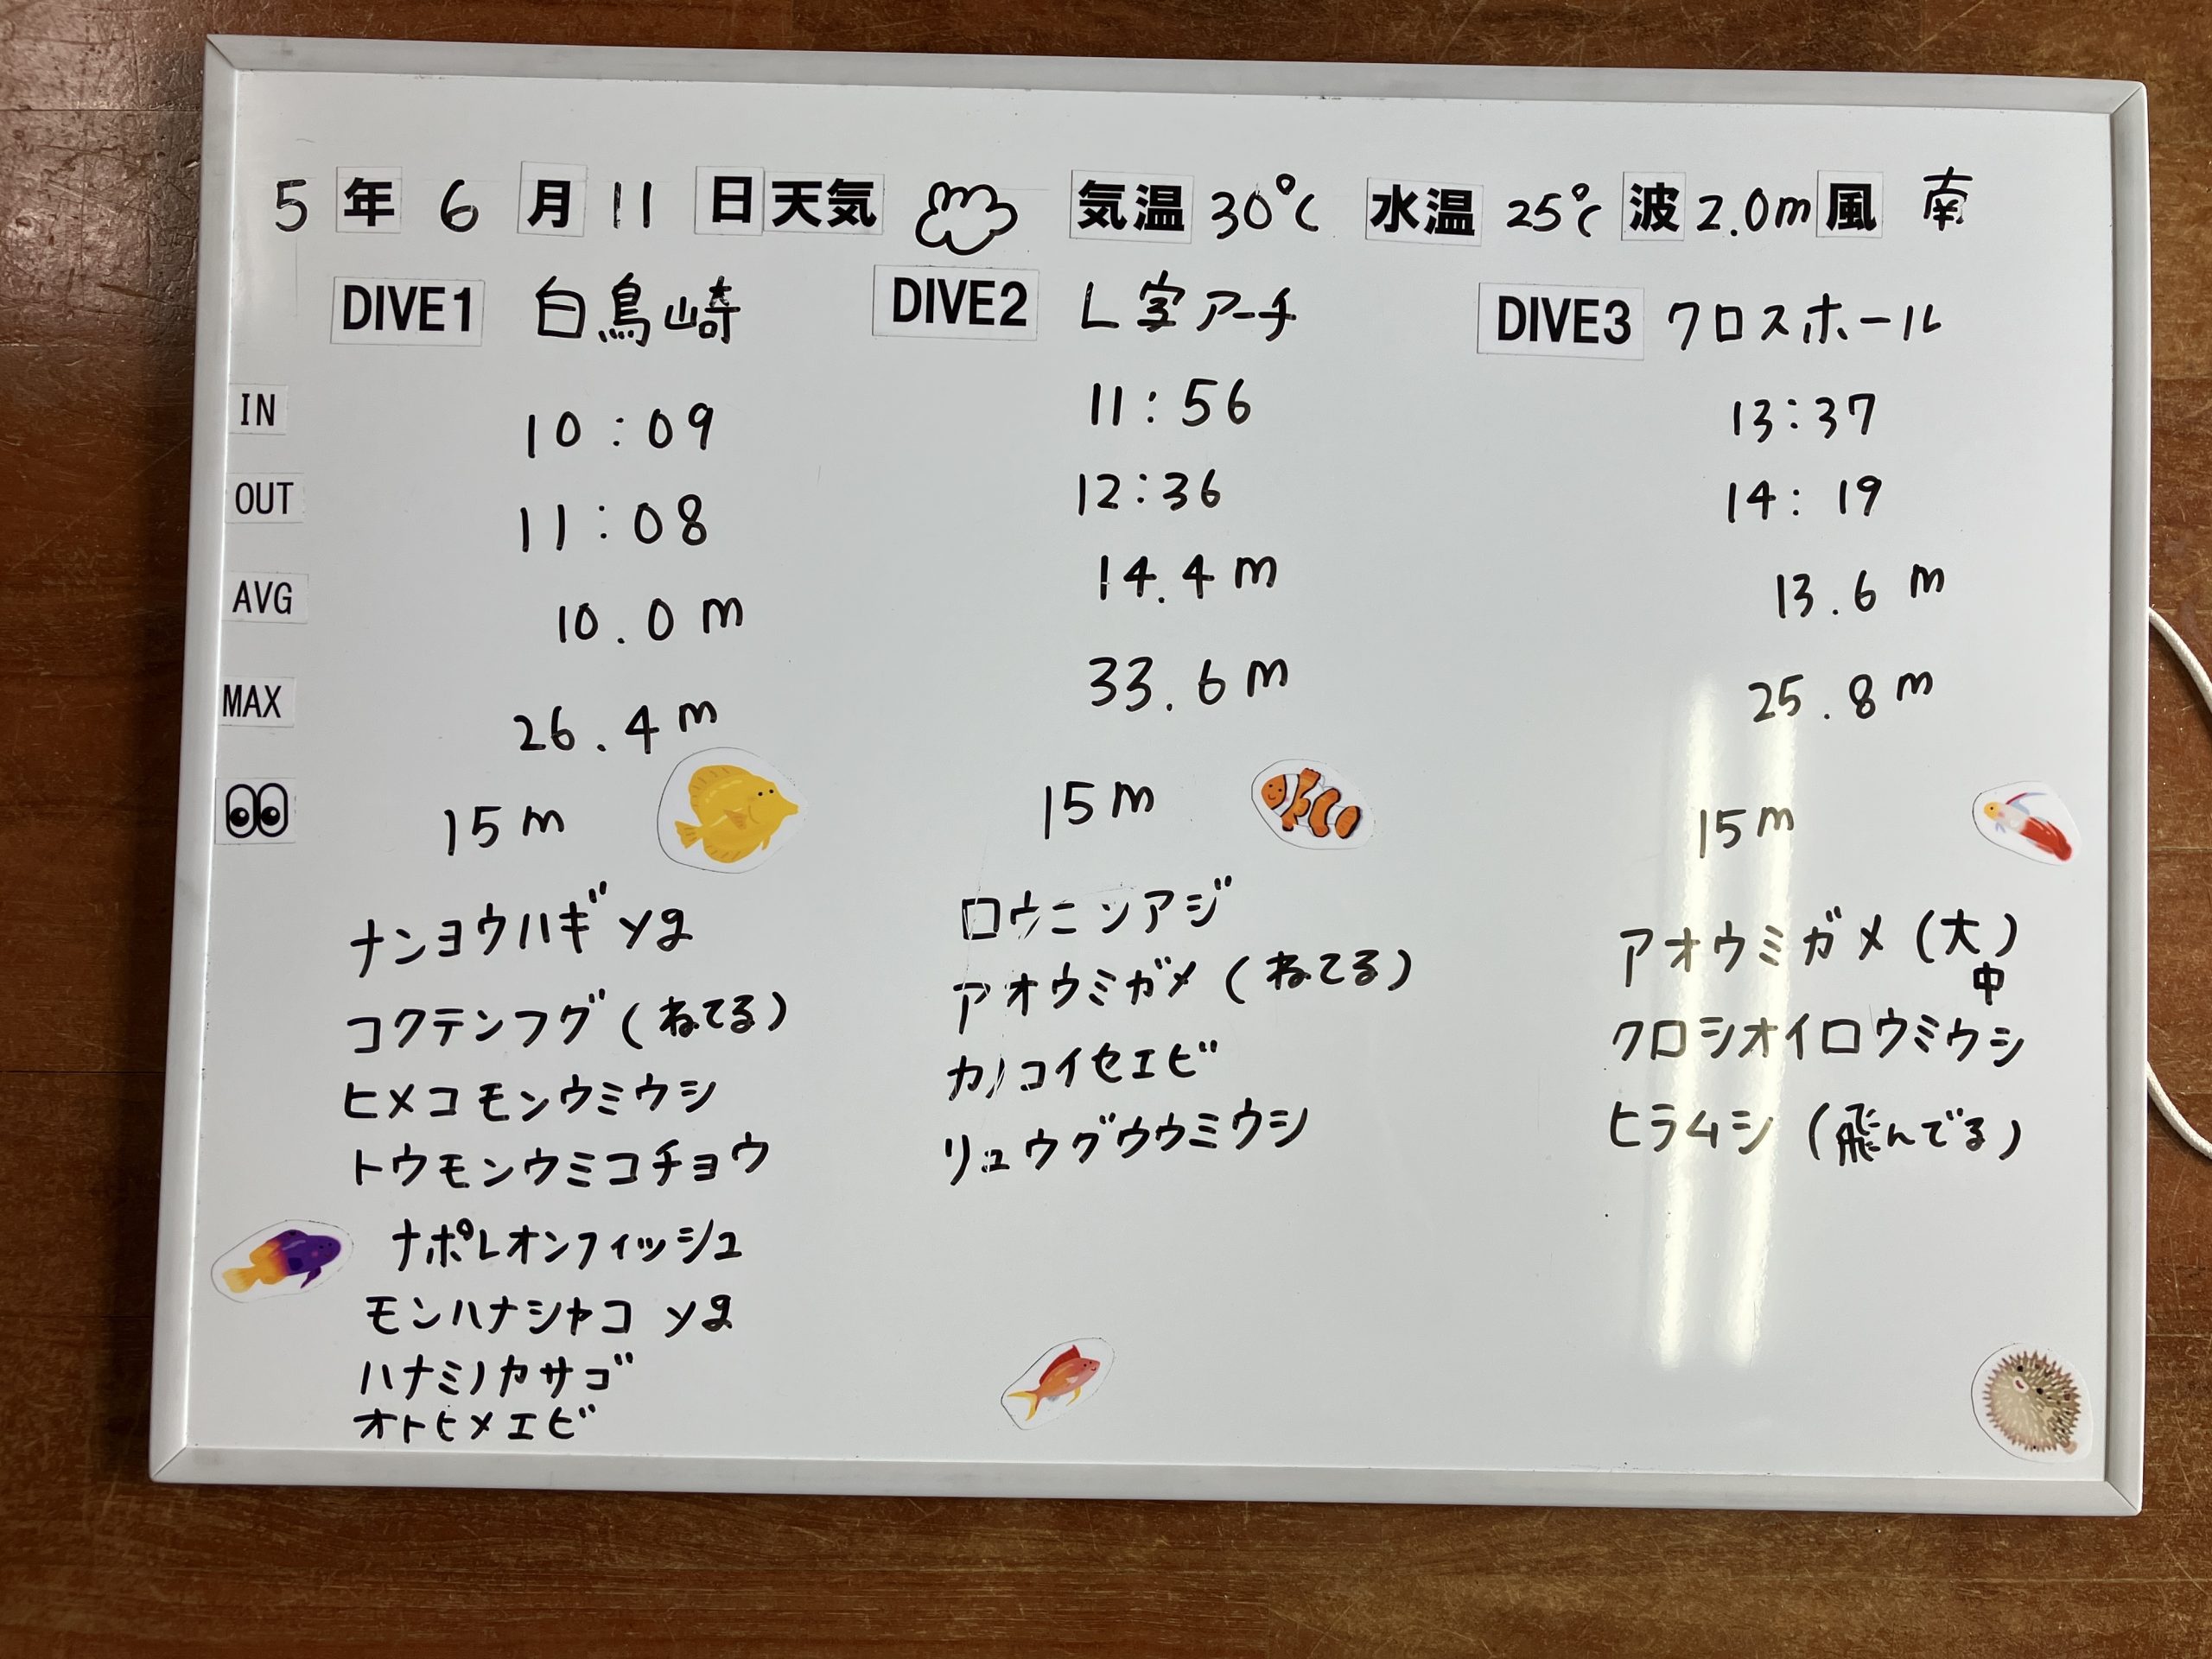 5 年 6 月 11 日 天気 気温 30℃ 水温 25℃ 波 2.0m 風 南
DIVE1 白鳥崎 DIVE2 L字アーチ DIVE3 クロスホール
IN 10:09 11:56 13:37
OUT 11:08 12:36 14:19
AVG 10.0m 14.4m 13.6m
MAX 26.4m 33.6m 25.8m
15m 15m 15m
ナンヨウハギ yg
コクテンフグ(ねてる)
ヒメコモンウミウシ
トウモンウミコチョウ
ナポレオンフィッシュ
モンハナシャコ yg
ハナミノカサゴ
オトヒメエビ
ロウニンアジ
アオウミガメ(ねてる)
カノコイセエビ
リュウグウウミウシ
アオウミガメ(大)
中
クロシオイロウミウシ
ヒラムシ(飛んでる)